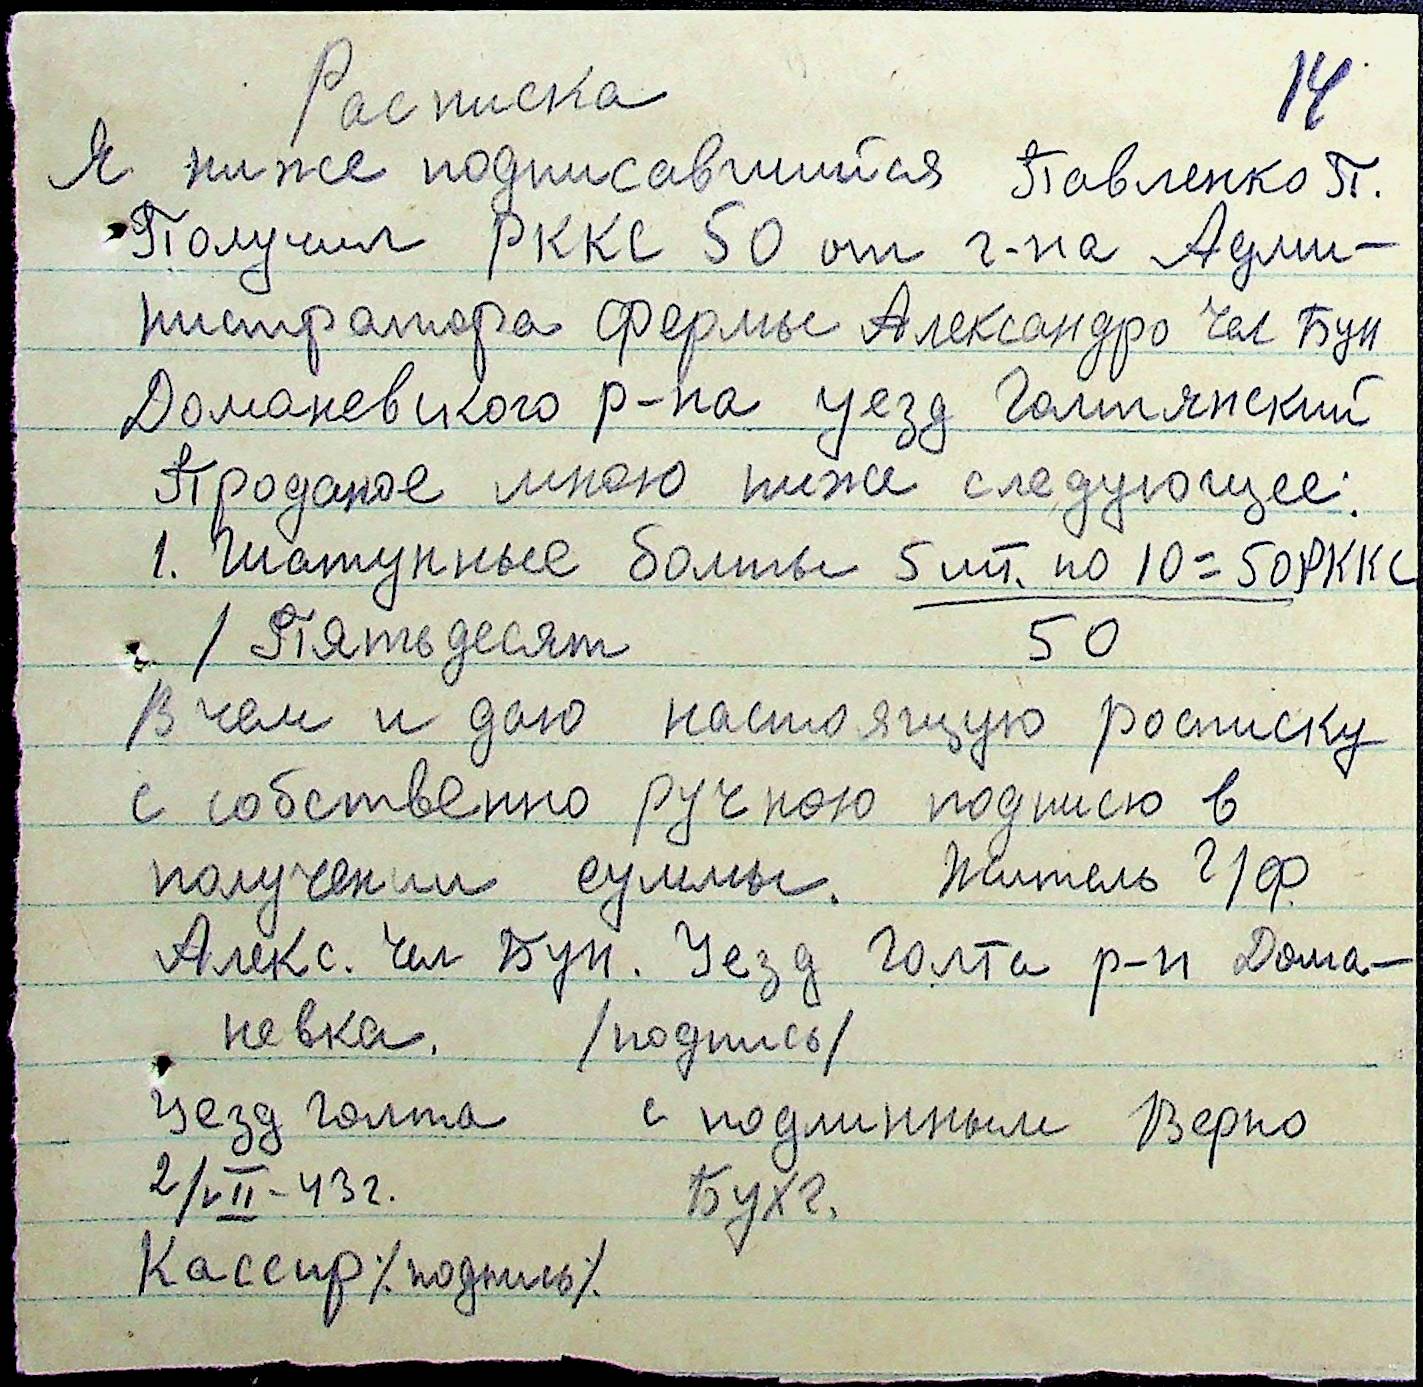 14
Расписка
Я ниже подписавшийся Павленко П.
Получил РККС 50 от г-на Адми-
нистратора фермы Александро Чел Бун
Доманевского р-на уезд Голтянский
Проданое мною ниже следующее:
1. Шатунные болты 5 шт. по 10 = 50 РККС
/ Пятьдесят 50
В чем и даю настоящую росписку
с собственно ручною подписю в
получении суммы. Житель Г/Ф.
Алекс. Чел Бун. Уезд Голта р-н Дома-
невка. /подпись/
Уезд Голта с подлинным Верно
2/VII-43г. Бухг.
Кассир /подпись/.